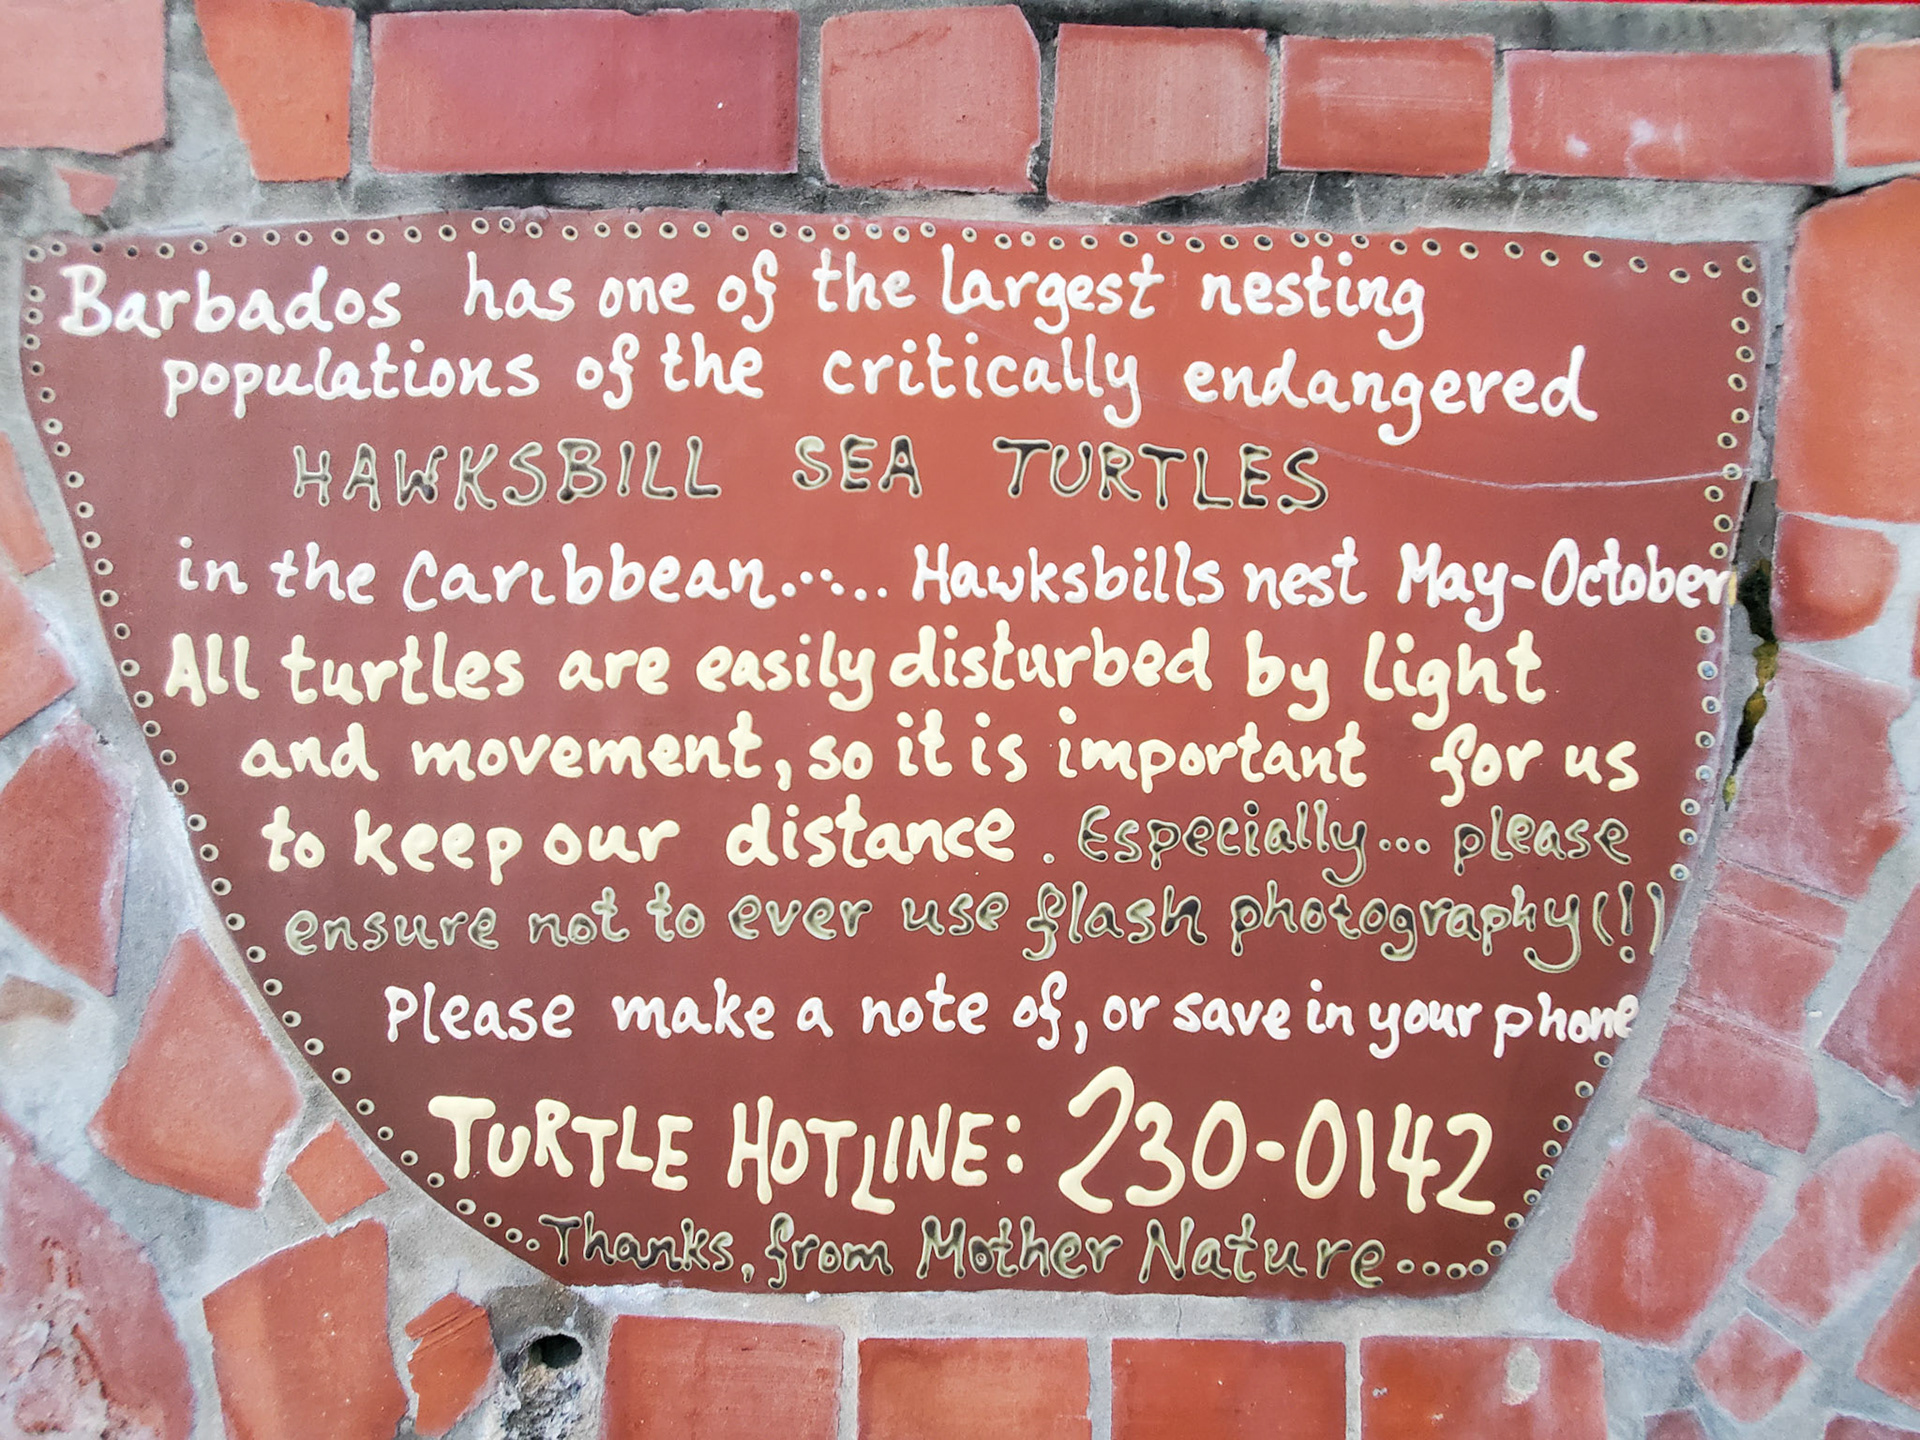 Barbados has one of the largest nesting
populations of the critically endangered
HAWKSBILL SEA TURTLES
in the Caribbean...... Hawksbills nest May-October
All turtles are easily disturbed by light
and movement, so it is important for us
to keep our distance. Especially... please
ensure not to ever use flash photography(!)
Please make a note of, or save in your phone
TURTLE HOTLINE: 230-0142
...Thanks, from Mother Nature....